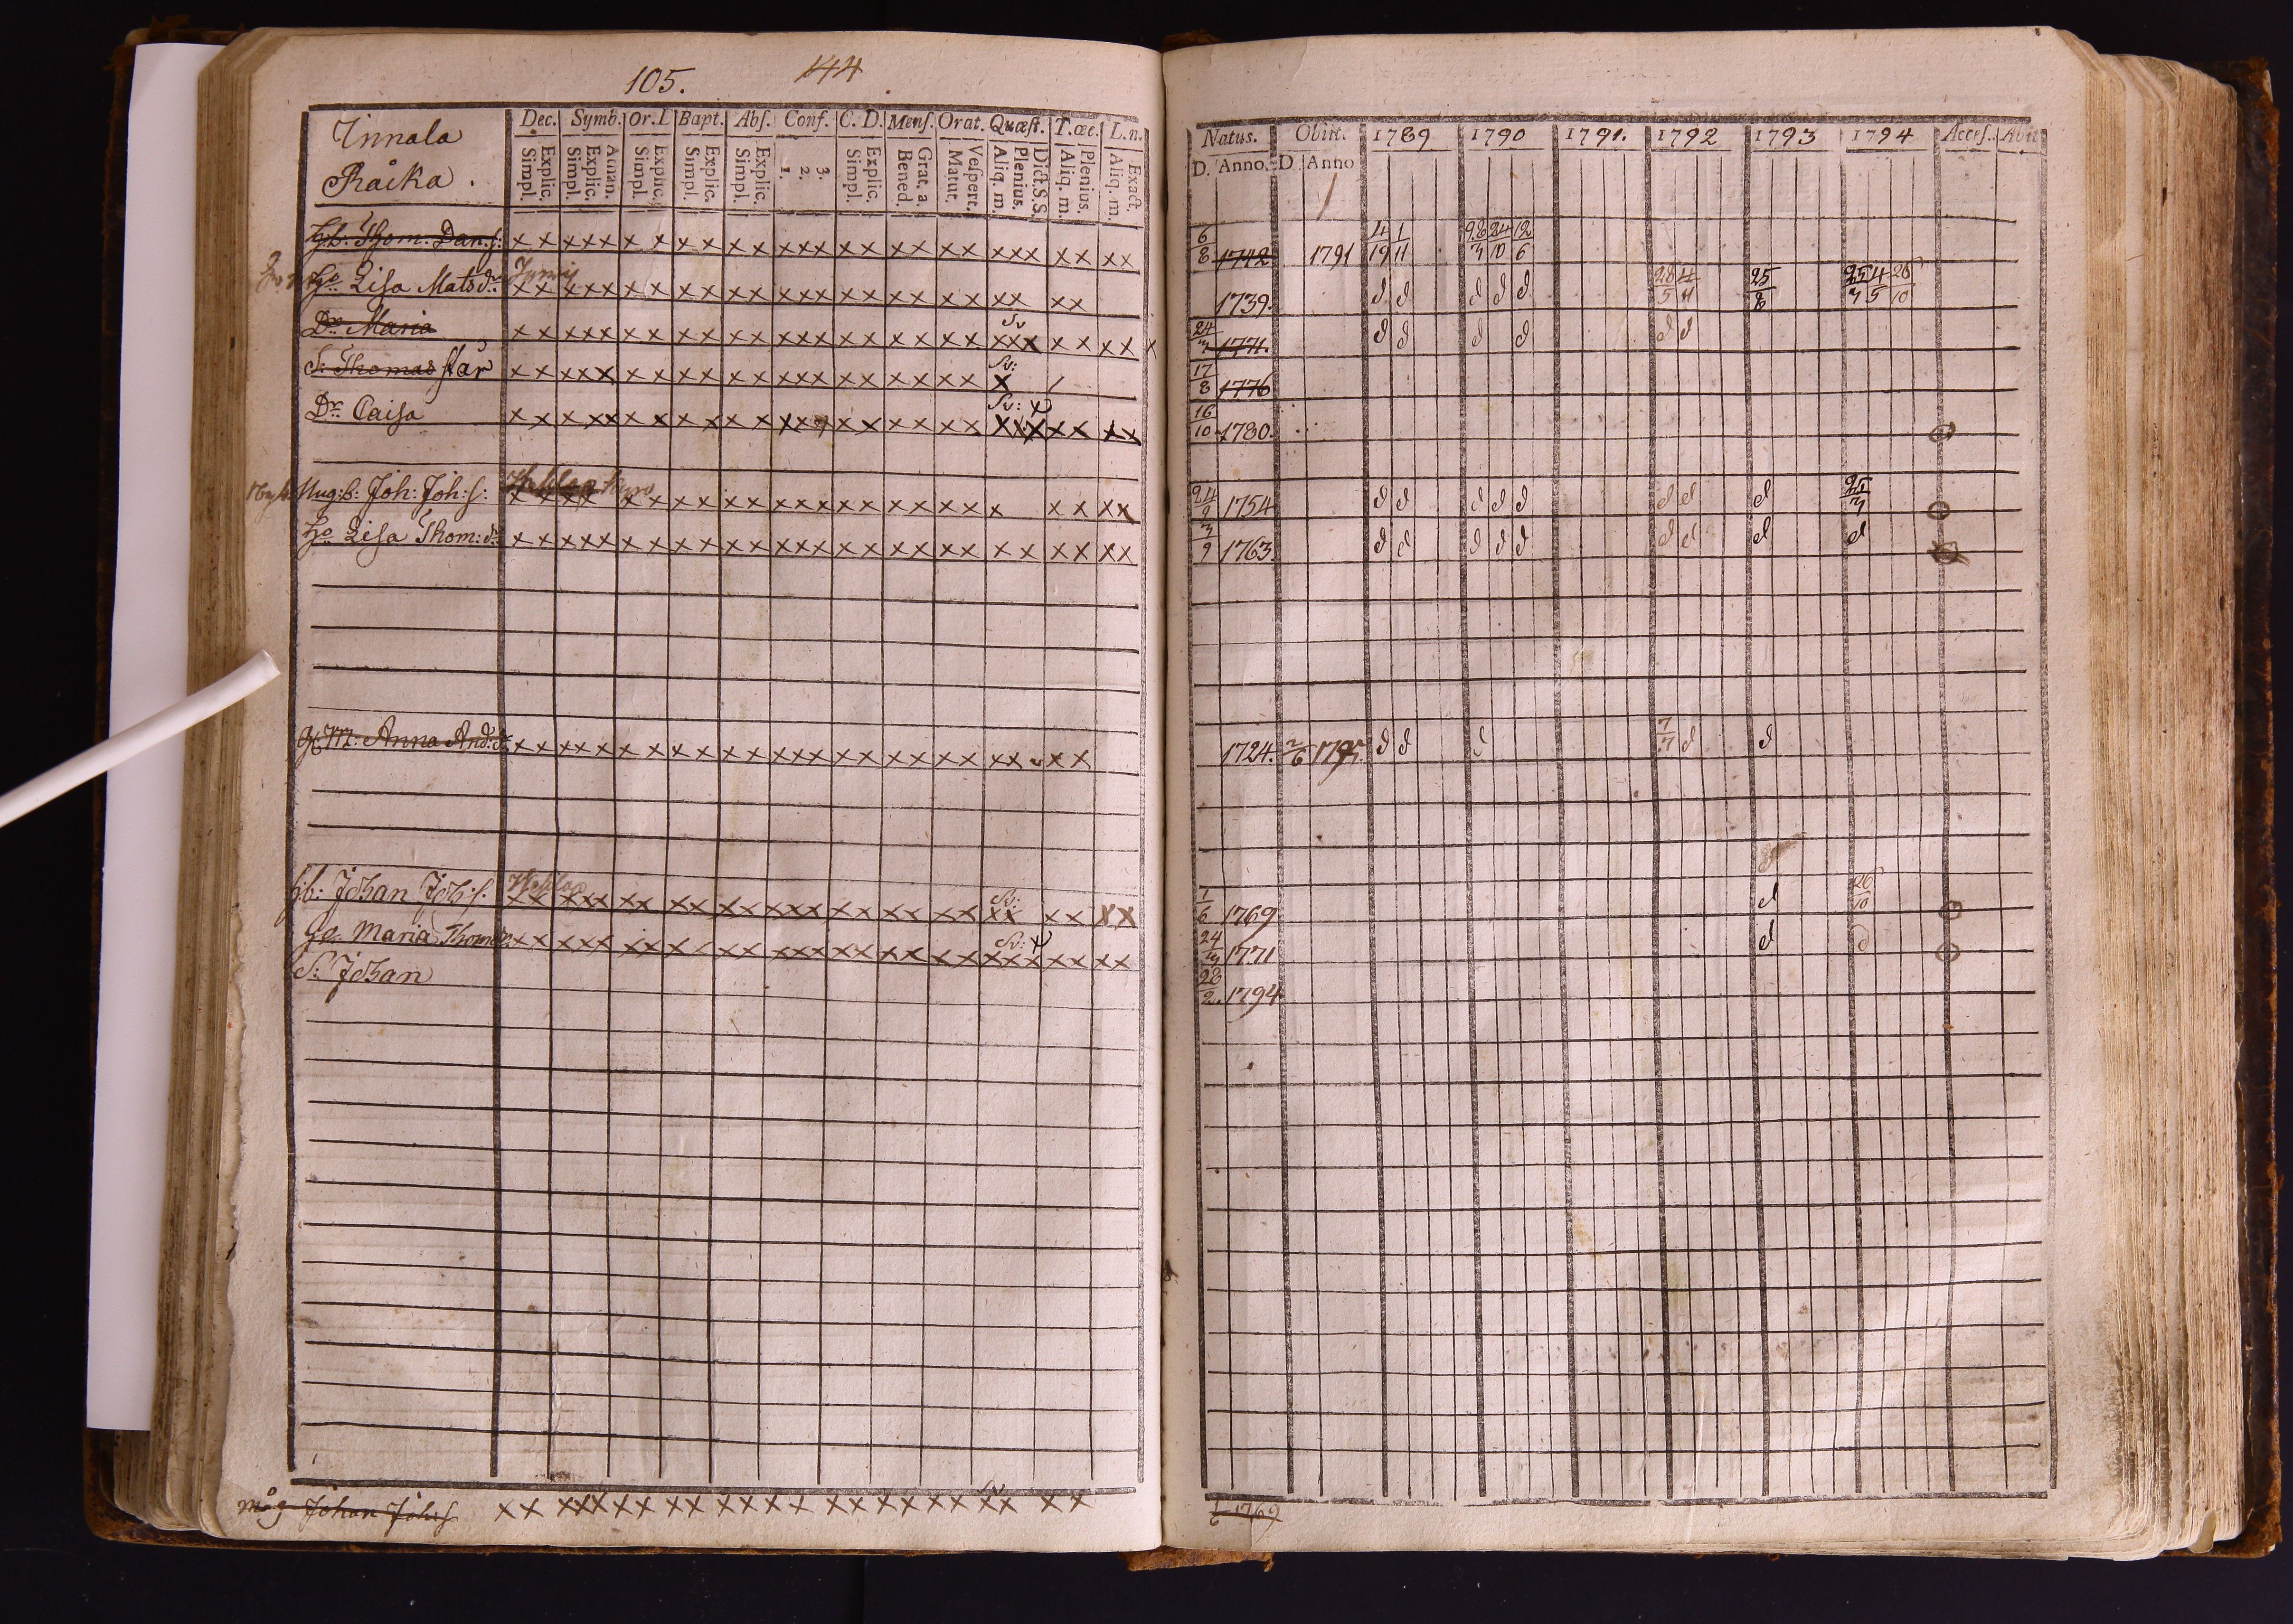 105. 144
Innala
Råika.
Dec. Symb. Or. L Bapt. Abs. Conf. C. D. Mens. Orat. Quæst. T. œc. L. n.
Explic. Simpl. Athan. Explic. Simpl. Explic. Simpl. Explic. Simpl. Explic. Simpl. 3. 2. 1. Explic. Simpl. Grat. a. Bened. Vespert. Matut. Dict. S. S. Plenius. Aliq. m. Plenius. Aliq. m. Exact. Aliq. m.
Natus. Obiit. 1789 1790 1791. 1792 1793 1794 Acces. Abit
D. Anno. D. Anno
Hb. Thom. Dan. s: x x x x x x x x x x x x x x x x x x x x x x x x x x x 6/8 1742 1791 4/19 1/11 28/3 24/10 12/6
Ha Lisa Matsdr x x x x x x x x x x x x x x x x x x x x x x x x 1739. d d d d d 28/5 4/11 25/8 25/3 4/5 26/10
Dr. Maria Sv x x x x x x x x x x x x x x x x x x x x x x x x x x x 24/3 1771. d d d d d d
S: Thomas står Sv: x x x x x x x x x x x x x x x x x x x x x 17/8 1776
Dr. Caisa Sv: x x x x x x x x x x x x x x x x x x x x x x x x x x x 16/10 1780.
Mug: b: Joh: Joh: s: x x x x x x x x x x x x x x x x x x x x x x x x x 24/9 1754 d d d d d d d d 25/3
Ha Lisa Thom: dr x x x x x x x x x x x x x x x x x x x x x x x x x x 3/9 1763. d d d d d d d d d
H. M: Anna And: dr x x x x x x x x x x x x x x x x x x x x x x x x 1724. 2/6 d d d 7/7 d d
Hb: Johan Joh: s. Sv: x x x x x x x x x x x x x x x x x x x x x x x x x x 1/6 1769 d 26/10
Ha. Maria Thomdr Sv: x x x x x x x x x x x x x x x x x x x x x x x x x x x 24/3 1771 d d
S: Johan 28/2. 1794
Måg Johan Johs Sv x x x x x x x x x x x x x x x x x x x x x x x x 1/6 1769